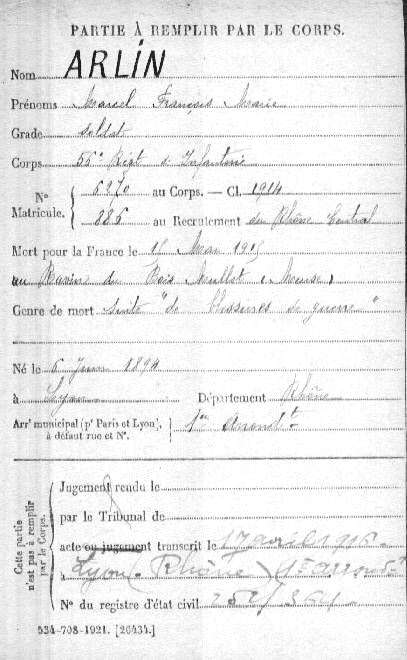 PARTIE À REMPLIR PAR LE CORPS.
Nom ARLIN
Prénoms Marcel François Marie
Grade soldat
Corps 55e Régt d'Infanterie
N° Matricule. 6270 au Corps. — Cl. 1914
886 au Recrutement du Rhône Central
Mort pour la France le 15 Mai 1915
au Ravin du Bois (Meuse)
Genre de mort suite "de blessures de guerre"
Né le 6 1894
à Lyon Département Rhône
Arrt municipal (pr Paris et Lyon), à défaut rue et N°. 1er Arrondt
Cette partie n'est pas à remplir par le Corps.
Jugement rendu le
par le Tribunal de
acte ou jugement transcrit le 17 avril 1916
à Lyon (Rhône) (1er arrondt)
N° du registre d'état civil
534-708-1921. [26434.]